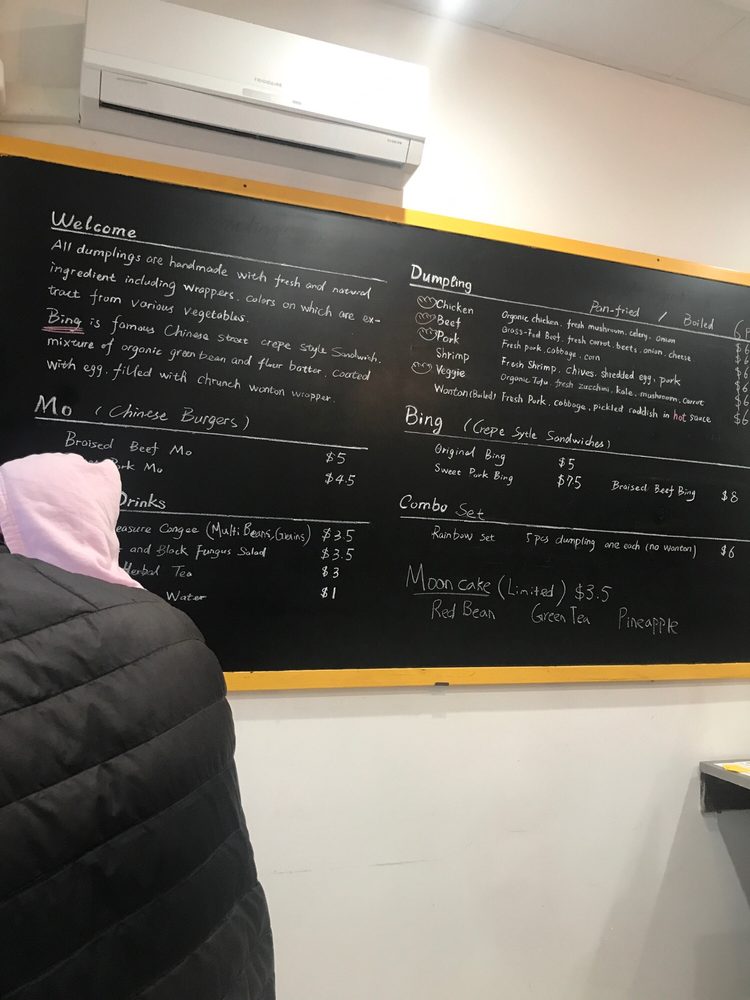 FRIGIDAIRE
Welcome
All dumplings are handmade with fresh and natural
ingredient including wrappers. colors on which are ex-
tract from various vegetables.
Bing is famous Chinese street crepe style Sandwich.
mixture of organic green bean and flour batter. coated
with egg. filled with chrunch wonton wrapper.
Mo (Chinese Burgers)
Braised Beef Mo $5
Pork Mo $4.5
Drinks
Congee (Multi Beans, Grains) $3.5
and Black Fungus Salad $3.5
Herbal Tea $3
Water $1
Dumpling Pan-fried / Boiled 6
Chicken Organic chicken. fresh mushroom. celery. onion $6
Beef Grass-Fed Beef. fresh carrot. beets. onion. cheese $6
Pork Fresh pork. cabbage. corn $6
Shrimp Fresh Shrimp. Chives. shredded egg. pork $6
Veggie Organic Tofu. fresh zucchini. kale. mushroom. carrot $6
Wonton (Boiled) Fresh Pork. cabbage. pickled raddish in hot sauce $6
Bing (Crepe Sytle Sandwiches)
Original Bing $5
Sweet Pork Bing $7.5 Braised Beef Bing $8
Combo Set
Rainbow set 5 pcs dumpling one each (no wonton) $6
Moon cake (Limited) $3.5
Red Bean Green Tea Pineapple